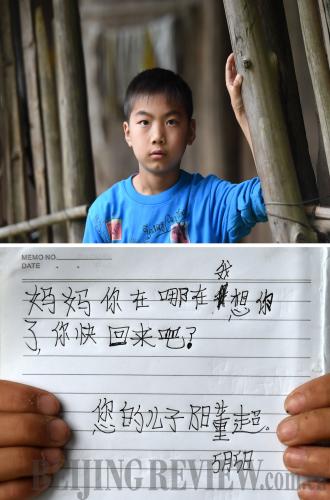 MEMO NO.
DATE . .
我
妈妈你在哪在想你
了,你快回来吧?
您的儿子阳董超。
BEIJING REVIEW.com.cn